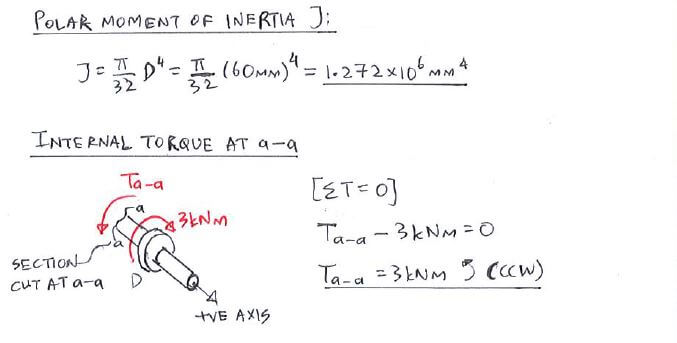 POLAR MOMENT OF INERTIA J:
J = π/32 D⁴ = π/32 (60MM)⁴ = 1.272x10⁶ MM⁴
INTERNAL TORQUE AT a-a
Ta-a
a
3kNM
a
SECTION
CUT AT a-a
D
+VE AXIS
[ΣT=0]
Ta-a - 3kNM = 0
Ta-a = 3kNM ↺ (CCW)